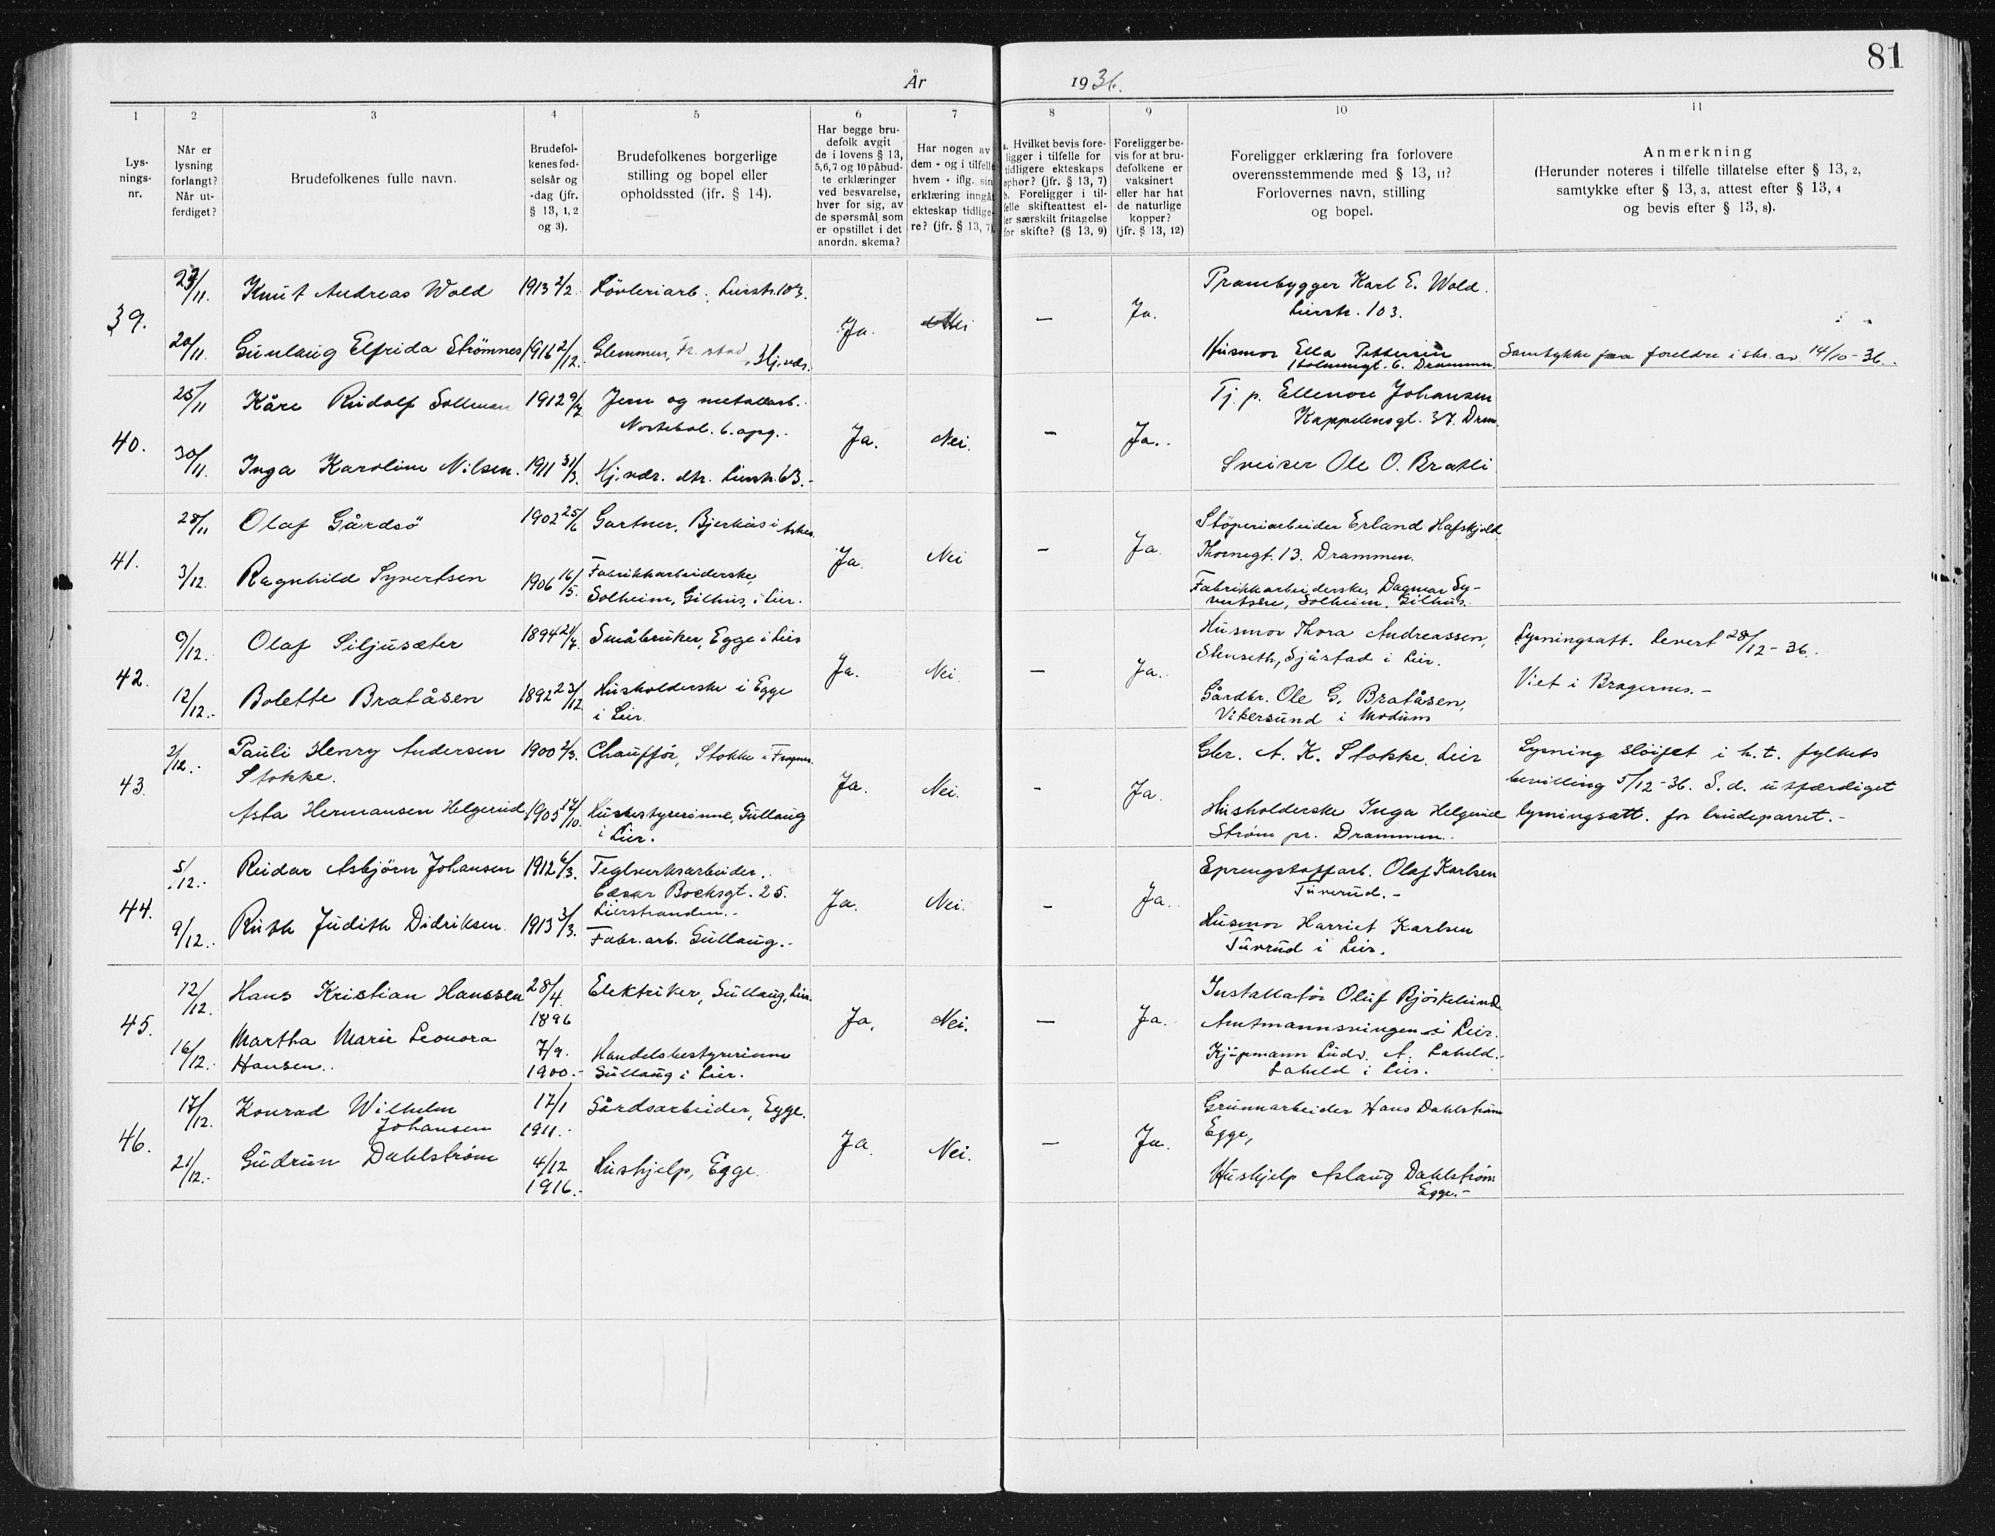 81
År 1936.
1 2 3 4 5 6 7 8 9 10 11
Lys-
nings-
nr.
Når er
lysning
forlangt?
Når ut-
ferdiget?
Brudefolkenes fulle navn.
Brudefol-
kenes fød-
selsår og
-dag (jfr.
§ 13, 1, 2
og 3).
Brudefolkenes borgerlige
stilling og bopel eller
opholdssted (ifr. § 14).
Har begge bru-
defolk avgit
de i lovens § 13,
5,6,7 og 10 påbud-
te erklæringer
ved besvarelse,
hver for sig, av
de spørsmål som
er opstillet i det
anordn. skema?
Har nogen av
dem - og i tilfelle
hvem - iflg. sin
erklæring inngåt
ekteskap tidlige-
re? (jfr. § 13, 7)
a. Hvilket bevis fore-
ligger i tilfelle for
tidligere ekteskaps
ophør? (jfr. § 13, 7)
b. Foreligger i til-
felle skifteattest el-
ler særskilt fritagelse
for skifte? (§ 13, 9)
Foreligger be-
vis for at bru-
defolkene er
vaksinert
eller har hat
de naturlige
kopper?
(jfr. § 13, 12)
Foreligger erklæring fra forlovere
overensstemmende med § 13, 11?
Forlovernes navn, stilling
og bopel.
Anmerkning
(Herunder noteres i tilfelle tillatelse efter § 13, 2,
samtykke efter § 13, 3, attest efter § 13, 4
og bevis efter § 13, 8).
39. Knut Andreas Wold 1913 2/2. Høvleriarb. Lierstr. 103. Ja. Nei — Ja. Prambygger Karl E. Wold.
Lierstr. 103.
20/11 Gunlaug Elfrida Strømnes 1916 2/12. Glemmen, Fr.stad, Hj.vær. Husmor Ella Pettersen Samtykke fra foreldre i skr. av 14/10-36.
Holmengt. 6. Drammen
40. 25/11 Kåre Rudolf Sollman 1912 9/7 Jern og metallarb. Ja. Nei. — Ja. Tj. p. Ellenore Johansen
Kappelensgt. 37. Dram.
30/11 Inga Karoline Nilsen. 1911 31/3. Hj.vær. dtr. Lierstr. 63.- Sveiser Ole O. Bratli
41. 28/11 Olaf Gårdsö 1902 25/6 Gartner, Bjerkås i Asker Ja. Nei — Ja. Støperiarbeider Erland Hafskjold
Thornegt. 13. Drammen.
3/12. Ragnhild Syvertsen 1906 16/5. Fabrikkarbeiderske, Fabrikkarbeiderske, Dagmar Sy-
Solheim, Gilhus, i Lier. vertsen, Solheim, Gilhus.
42. 9/12. Olaf Siljusæter 1894 21/7. Småbruker, Egge i Lier Ja. Nei. — Ja. Husmor Thora Andreassen, Lysningsatt. levert 28/12-36.
Stenseth, Sjåstad i Lier.
12/12.- Bolette Bratåsen 1892 23/12 Husholderske i Egge Gårdbr. Ole G. Bratåsen, Viet i Bragernes.-
i Lier. Vikersund i Modum
43. 2/12.- Pauli Henry Andersen 1900 2/3. Chauffør, Stokke i Frogner. Ja. Nei. - Ja. Gbr. A. K. Stokke, Lier Lysning sløifet i h.t. fylkets
Stokke. bevilling 5/12-36. S.d. utfærdiget
Asta Hermansen Helgerud 1905 17/10. Husbestyrerinne, Gullaug Husholderske Inga Helgerud lysningsatt. for brudeparret.-
i Lier. Strøm pr. Drammen.
44. 5/12.- Reidar Asbjørn Johansen 1912 6/3. Teglverksarbeider. Ja. Nei. - Ja. Sprengstoffarb. Olaf Karlsen
Cæsar Boeksgt. 25. Tuverud.-
Lierstranden.-
9/12.- Ruth Judith Didriksen. 1913 3/3. Fabr.arb. Gullaug.- Husmor Harriet Karlsen
Tuvrud i Lier.
45. 12/12. Hans Kristian Hanssen 28/4. 1896 Elektriker, Gullaug, Lier. Ja. Nei. — Ja. Installatör Oluf Bjørkelund
Amtmannsvingen i Lier.
16/12. Martha Marie Leonora 7/9. Handelsbestyrerinne Kjöpmann Ludv. A. Laheld.
Hansen. 1900.- Gullaug i Lier. Laheld i Lier.
46. 17/12. Konrad Wilhelm 17/1 Gårdsarbeider, Egge. Ja. Nei. — Ja. Grunnarbeider Hans Dahlstrøm
Johansen 1911. Egge,
21/12.- Gudrun Dahlstrøm 4/12 Hushjelp, Egge. Hushjelp Aslaug Dahlstrøm
1916.- Egge.-